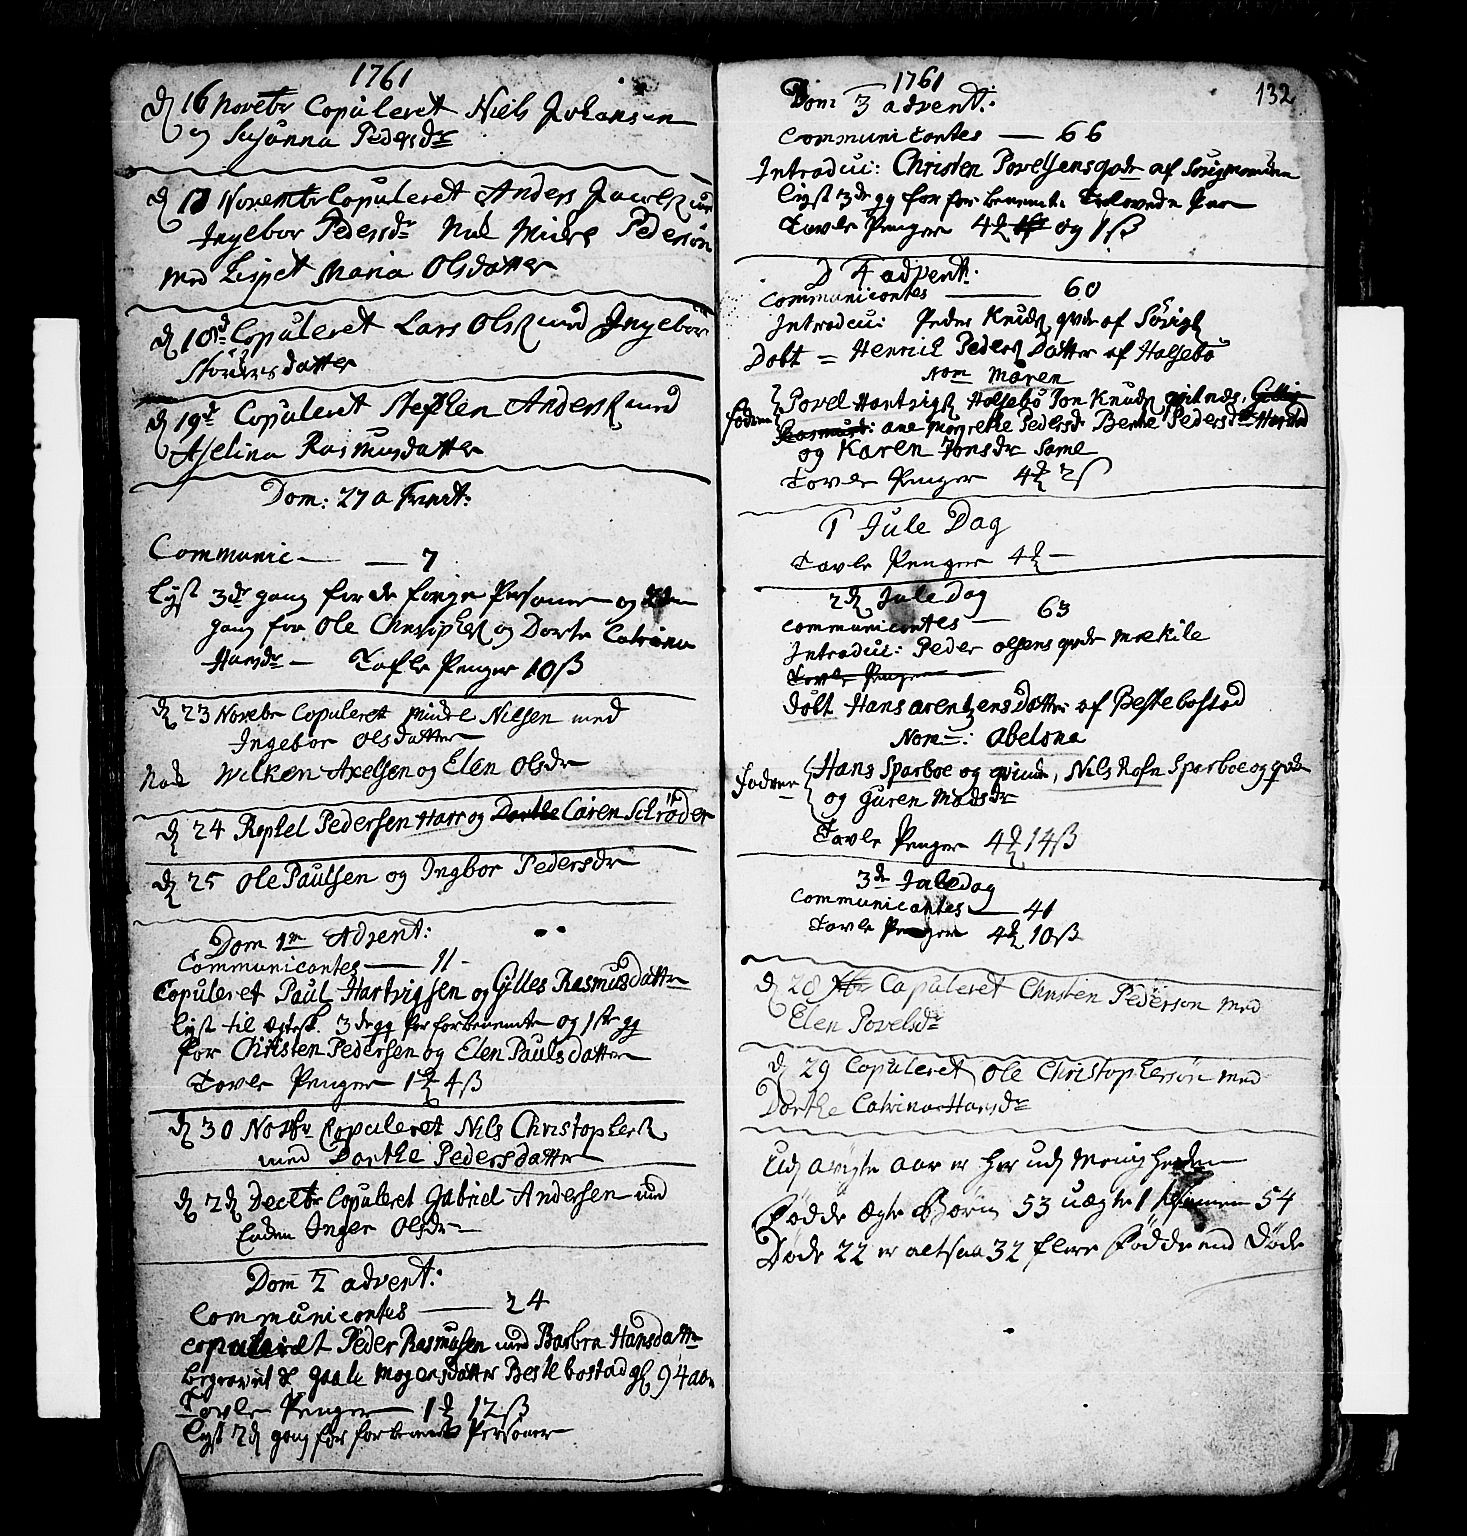 1761
D 16 Novebr Copuleret Niels Johansen
og Susanna Pedersdr
D 17 Novembr Copuleret Anders Jacobs med
Ingebor Pedersdr Nok Michel Pedersøn
med Lispet Maria Olsdatter
D 18de Copuleret Lars Ols med Ingebor
datter
D 19de Copuleret Stephen Anders med
Aselina Rasmusdatter
Dom: 27 a Trinit:
Communic — 7
Lyst 3de gang for de forige Personer og 2den
gang for Ole Christophers og Dorte Catrina
Hansdr — Tafle Penger 10 ß
D 23 Novebr Copuleret Michel Nilsen med
Ingebor Olsdatter
Nok Wilken Axelsen og Elen Olsdr
D 24 Rephel Pedersen Harr og Dorthe Caren Schrøder
D 25 Ole Paulsen og Ingbor Pedersdr
Dom 1m Advent:
Communicantes — 11 -
Copuleret Paul Hartvigsen og Gilles Rasmusdatter
Lyst til Ægtesk. 3de gg for forbenemte og 1ste gg
for Christen Pedersen og Elen Paulsdatter
Tavle Penger 1 ꝺ 4 ß
D 30 Novbr Copuleret Nils Christophers
med Dorthe Pedersdatter
D 2d Decebr Copuleret Gabriel Andersen med
Enken Inger Olsdr
Dom 2 advent:
Communicantes — 24
copuleredt Peder Rasmusen med Barbra Hansdattr
begravet Mogensdatter Bestebostad gl 94 aar
Tavle Penger — 1 ꝺ 12 ß
Lyst 2d gang for forbenemte Personer
132
1761
Dom 3 advent:
Communicantes — 66
Introduci: Christen Povelsens qvde af
Lyst 3de gg for forbenemte Trolovede Par
Tavle Penger 4 ꝺ og 1 ß
D 4 advent:
Communicantes — 60
Introduci Peder Knuds qvde af Sørvig
Døbt = Henrich Peders Datter af Halsebø
Nom Maren
Fadren Povel Hartvigs Halsebø Jon Knuds Gilles
Rasmusd: ane Margrethe Pedersd Berte Pedersdr
og Karen Jonsdr Same
Tavle Penger 4 ꝺ 2 ß
1 Jule Dag
Tavle Penger 4 ꝺ —
2d Jule Dag
communicantes — 63
Introduci: Peder Olsens qvde Mækile
Tavle Penger
døbt Hans arentzens Datter af Bestebostad
Nom: Abelona
Fadren Hans Sparboe og qvinde, Nils Rosn Sparboe og qvde
og Guren Madsdr
Tavle Penger 4 ꝺ 14 ß
3de Juledag
communicantes — 41
Tavle Penger 4 ꝺ 10 ß
D 28 Xbr Copuleret Christen Pederson med
Elen Povelsdr
D 29 Copuleret Ole Christophersøn med
Dorthe Catrina Hansdr
Udj avigte Aar er her udj Menigheden
Fødde Ægte Børn 53 uægte 1 54
Døde 22 er altsaa 32 flere Fødde end Døde